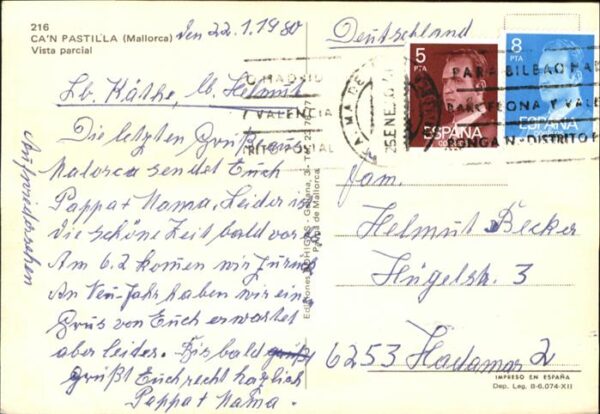 216
CA'N PASTILLA (Mallorca)
Vista parcial
den 22.1.1980
Lb. Käthe, lb. Helmut
Die letzten Grüße aus
Malorca sendet Euch
Pappa + Mama. Leider ist
die schöne Zeit bald vor
Am 6.2 komen wir zurück
An Neu-Jahr haben wir ein
Grus von Euch erwartet
aber leider. Bis bald grüßt
grüßt Euch recht hezlich
Pappa + Mama.
Aufwiedersehen
Ediciones
Palma de Mallorca
Deutschland
5
PTA
ESPAÑA
8
PTA
ESPAÑA
MADRID
VALENCIA
25 ENE
PARA BILBAO MADRID
BARCELONA Y VALENCIA
PONGA Nº DISTRITO POSTAL
Fam.
Helmut Becker
Hügelstr. 3
6253 Hadamar 2
IMPRESO EN ESPAÑA
Dep. Leg. B-6.074-XII